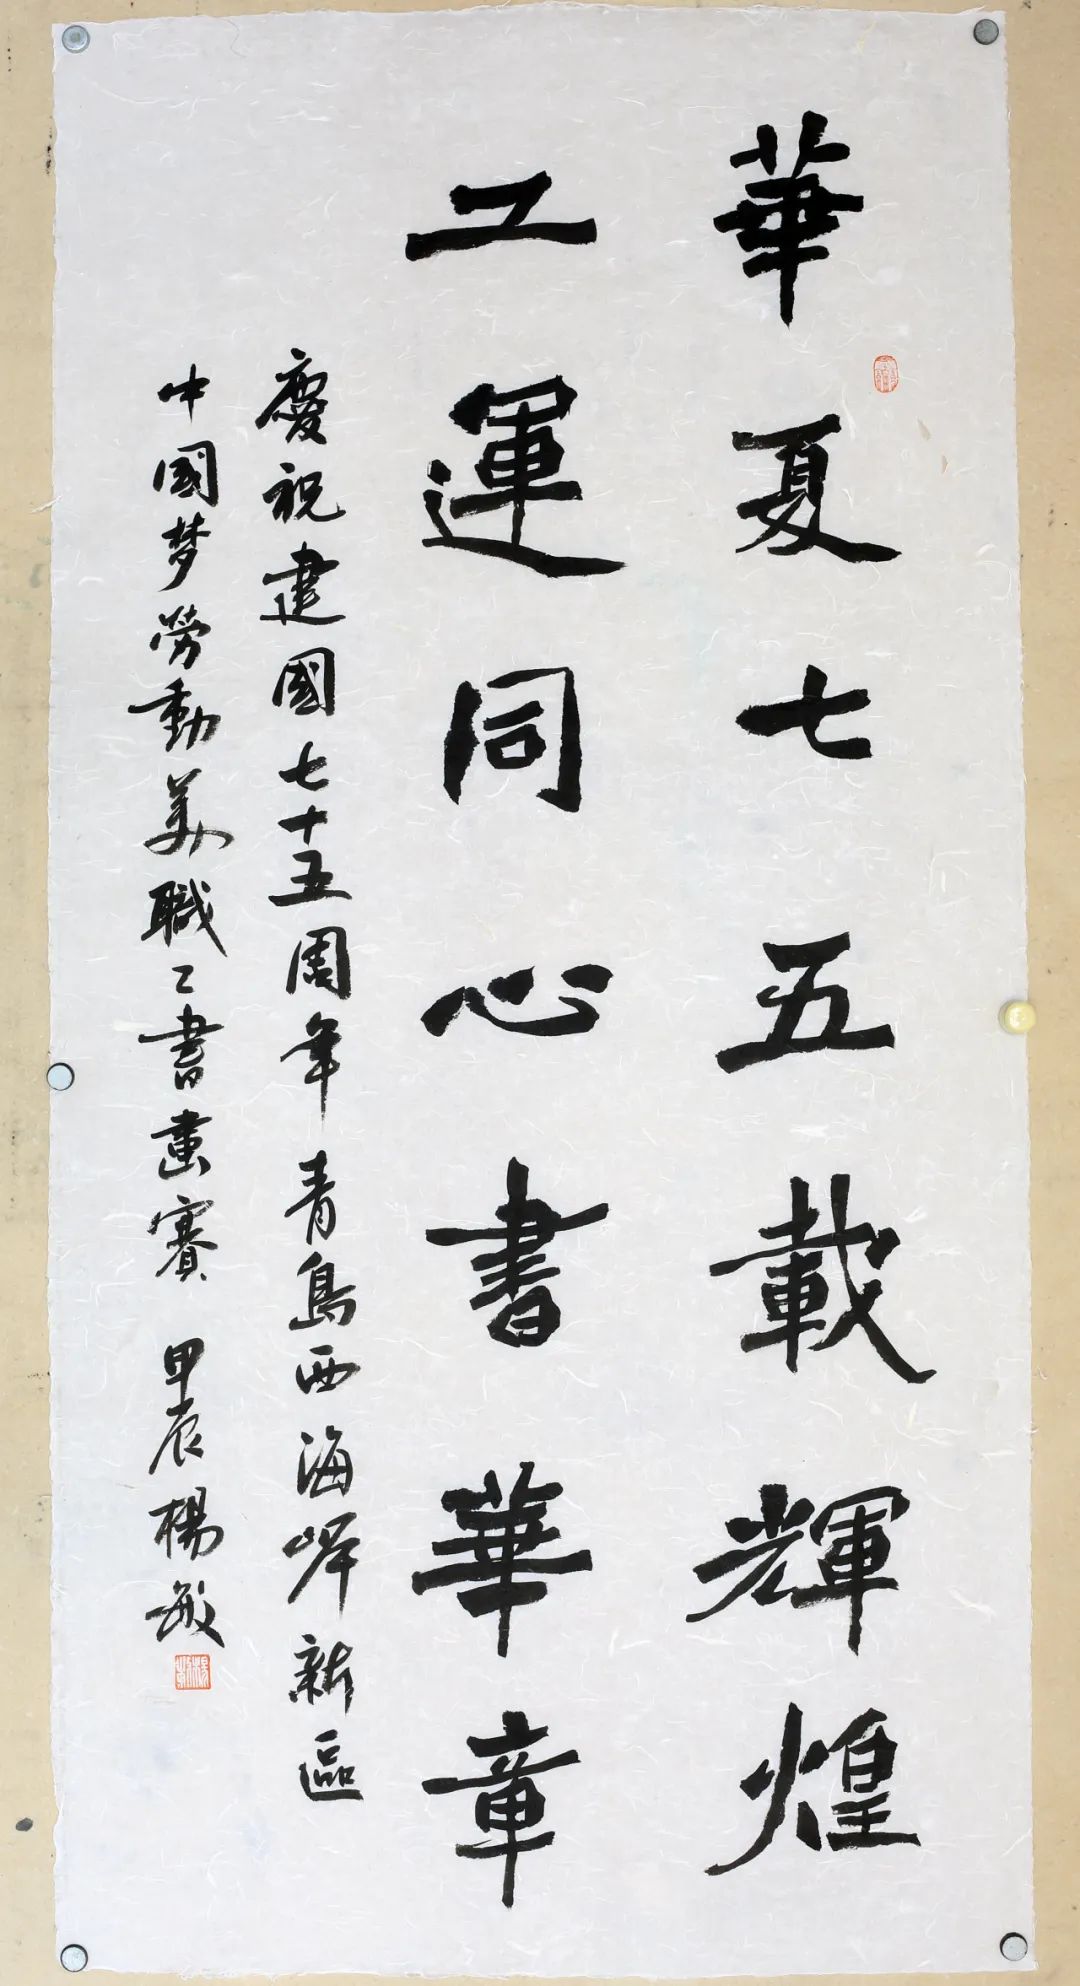 華夏七五載輝煌
工運同心書華章
慶祝建國七十五周年青島西海岸新區
中國梦勞動美職工書畫賽 甲辰楊敏